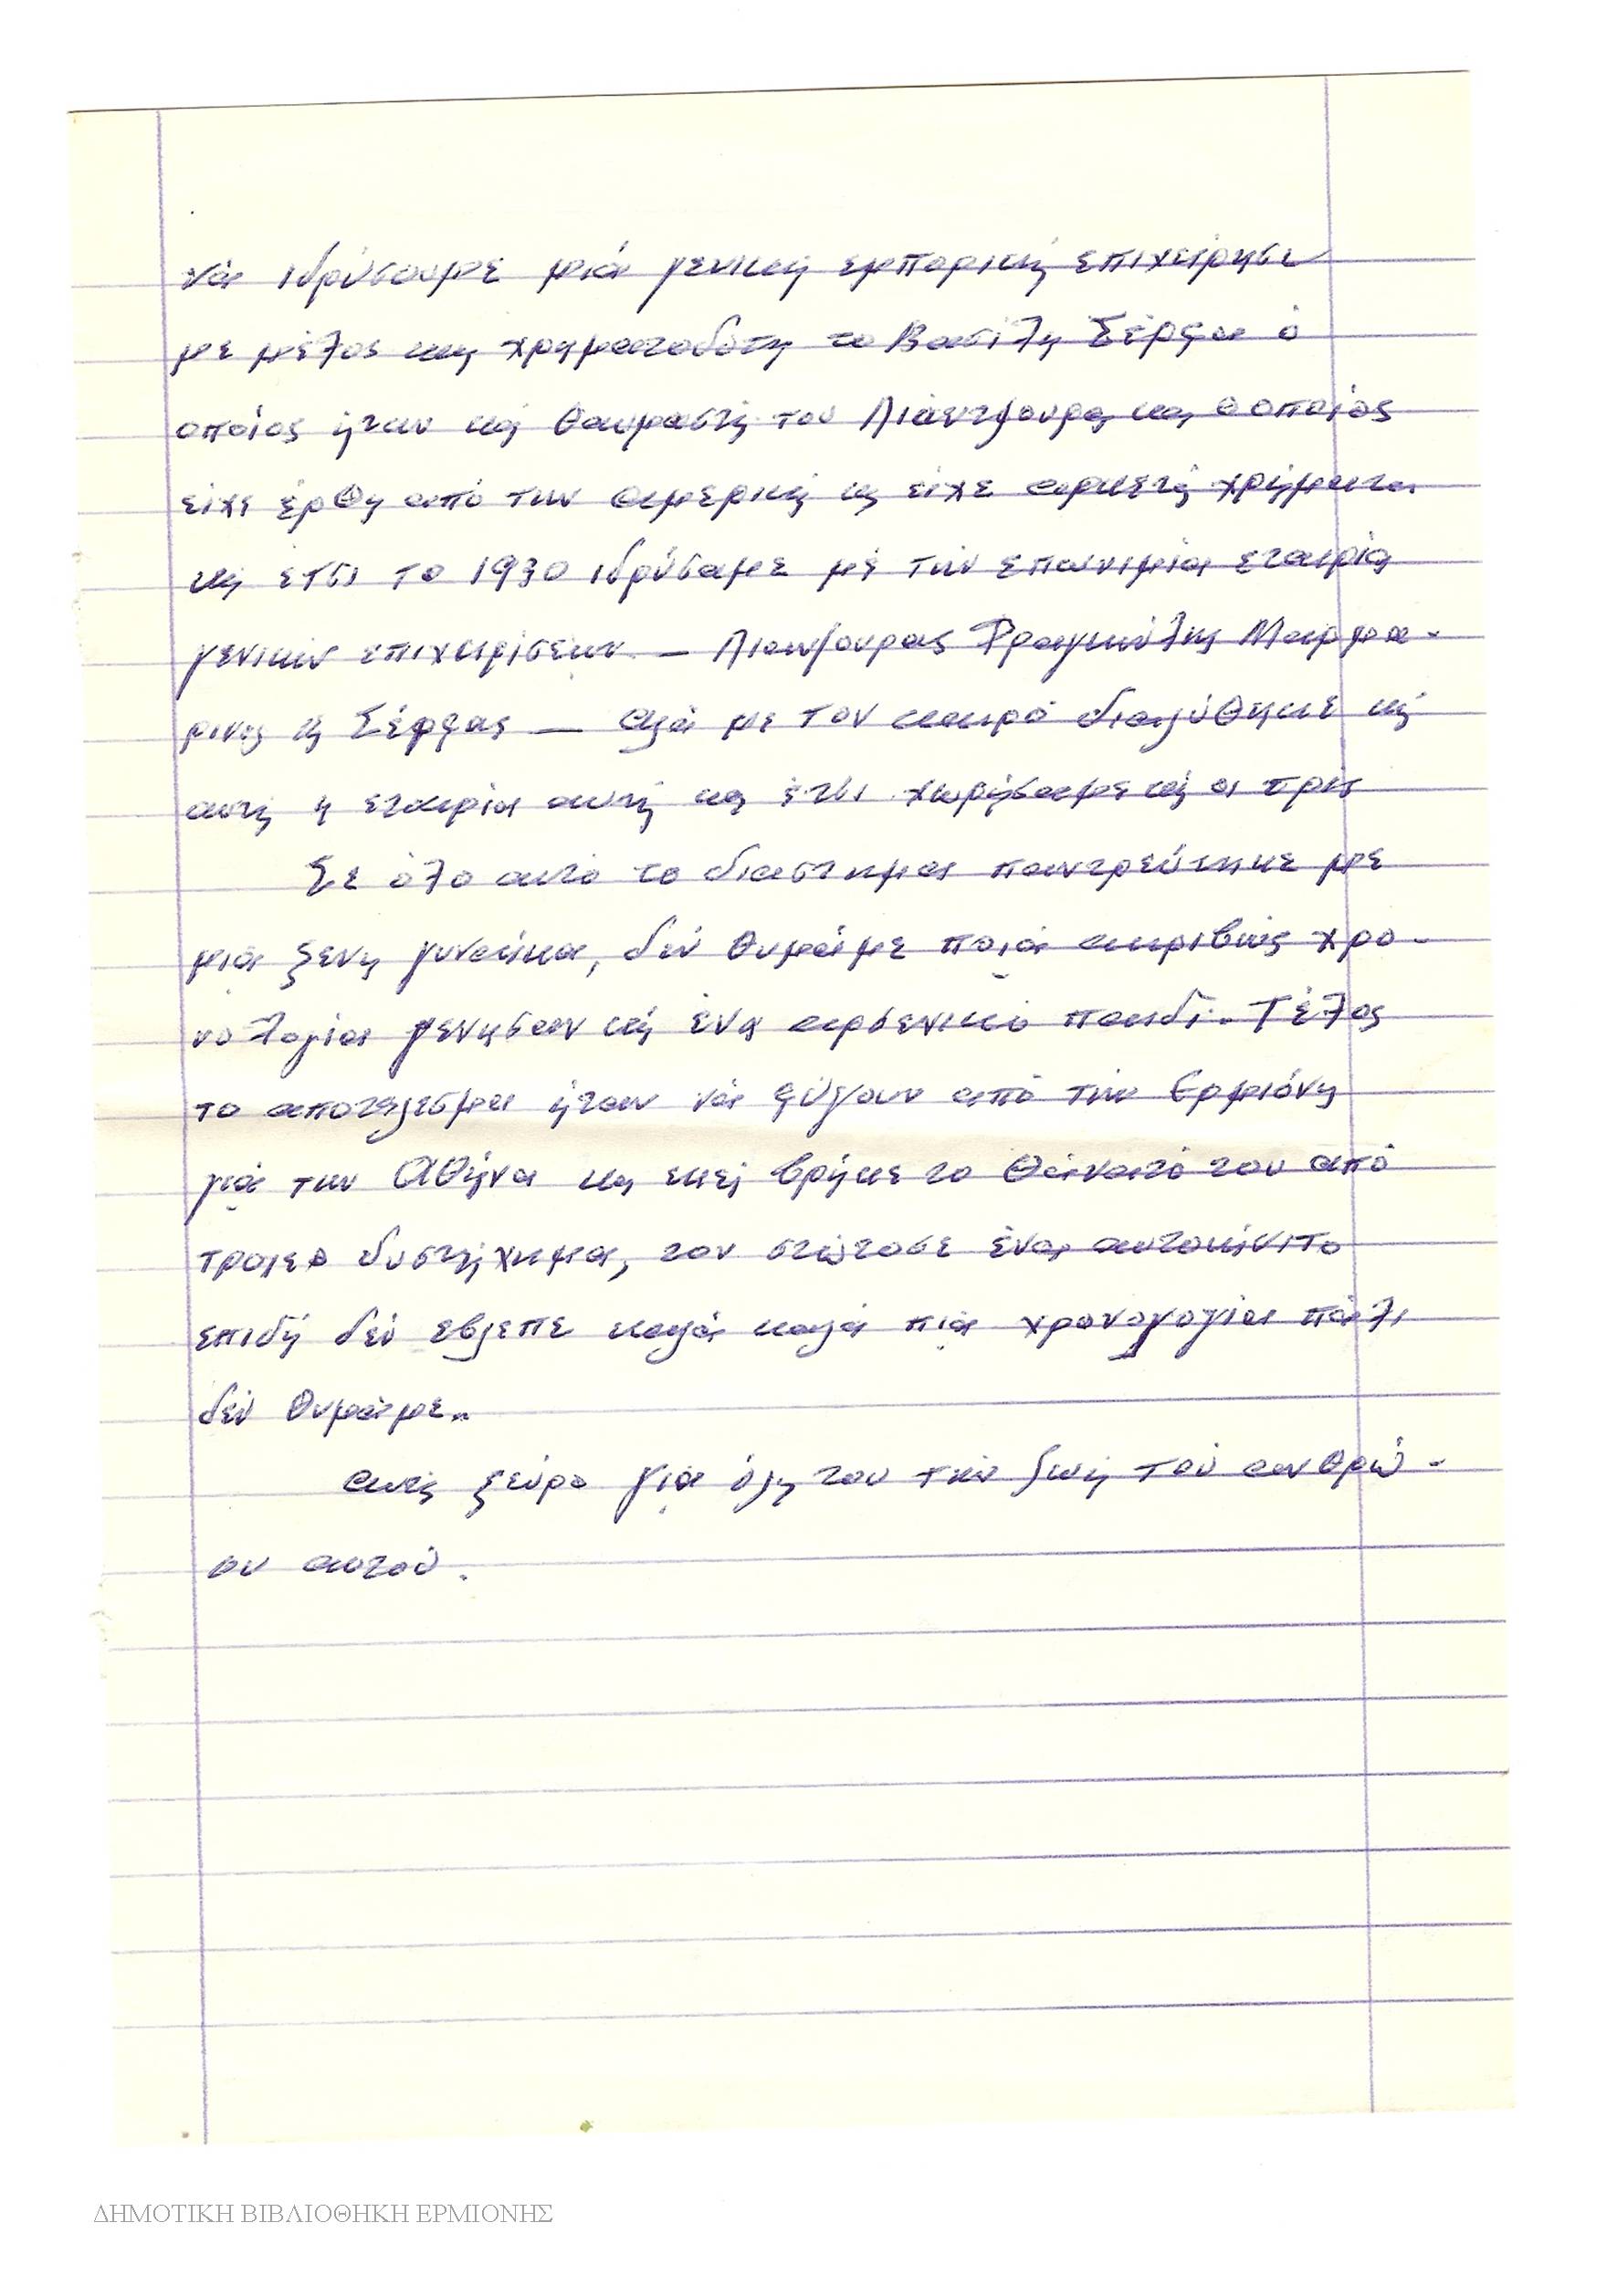 νά ιδρύσουμε μιά γενική εμπορική επιχείρησι
με μέλος και χρηματοδότη το Βασίλη Σέρφα ό
οποίος ήταν καί θαυμαστή του Λιάντζουρα και ο οποίος
είχε έρθη από την αμερική κ είχε αρκετά χρήματα
καί έτσι το 1930 ιδρύσαμε μέ τήν επωνιμία εταιρία
γενικών επιχειρίσεων — Λιαντζουρας Φραγκούλης Μαρμα-
ρινος κ Σέρφας — αλά με τον καιρό διαλύθηκε καί
αυτή η εταιρία αυτή και έτσι χωρήσαμε καί οι τρίς
Σε όλο αυτό το διαστημα παντρεύτηκε με
μια ξενη γυναίκα, δέν θυμάμε ποιά ακριβώς χρο-
νολογία γενησαν καί ένα αρσενικό παιδί. Τέλος
το αποτέλεσμα ήταν νά φύγουν από τήν Ερμιόνη
γιά την Αθήνα και εκεί βρήκε το θάνατό του από
τροχεο δυστήχημα, τον σκότοσε ένα αυτοκίνιτο
επιδή δέν εβλεπε καλά καλά πια χρονολογία πάλι
δέν θυμάμε.
αυτά ξεύρο για όλη του τήν ζωή τού ανθρώ-
ου αυτού.
ΔΗΜΟΤΙΚΗ ΒΙΒΛΙΟΘΗΚΗ ΕΡΜΙΟΝΗΣ